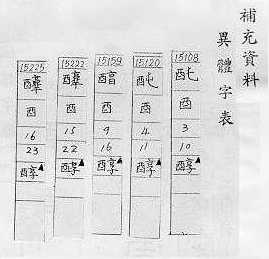 補充資料
異體字表
15108
酉
3
10
醇▲
15120
酉
4
11
醇▲
15159
酉
9
16
醇▲
15222
酉
15
22
醇▲
15225
酉
16
23
醇▲